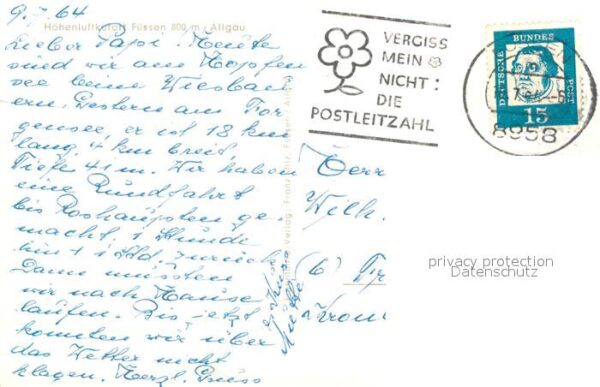 9.7.64
Höhenluftkurort Füssen 800 m · Allgäu
Lieber Papi. Heute
sind wir am Hopfen
see beine Wiesbad
ern. Gestern am For
gensee er ist 18 km
lang, 4 km breit,
Tiefe 41 m. Wir haben
eine Rundfahrt
bis Roshaupten ge-
macht. 1 Stunde
hin + 1 Std. zurück
Dann mussten
wir nach Hause
laufen. Bis jetzt
konnten wir über
das Wetter nicht
klagen. Herzl. Gruss
Mutti
Verlag Franz Füssen Allgäu
VERGISS
MEIN
NICHT:
DIE
POSTLEITZAHL
DEUTSCHE BUNDES POST
15
8958
Herr
Wilh.
(6)
privacy protection
Datenschutz